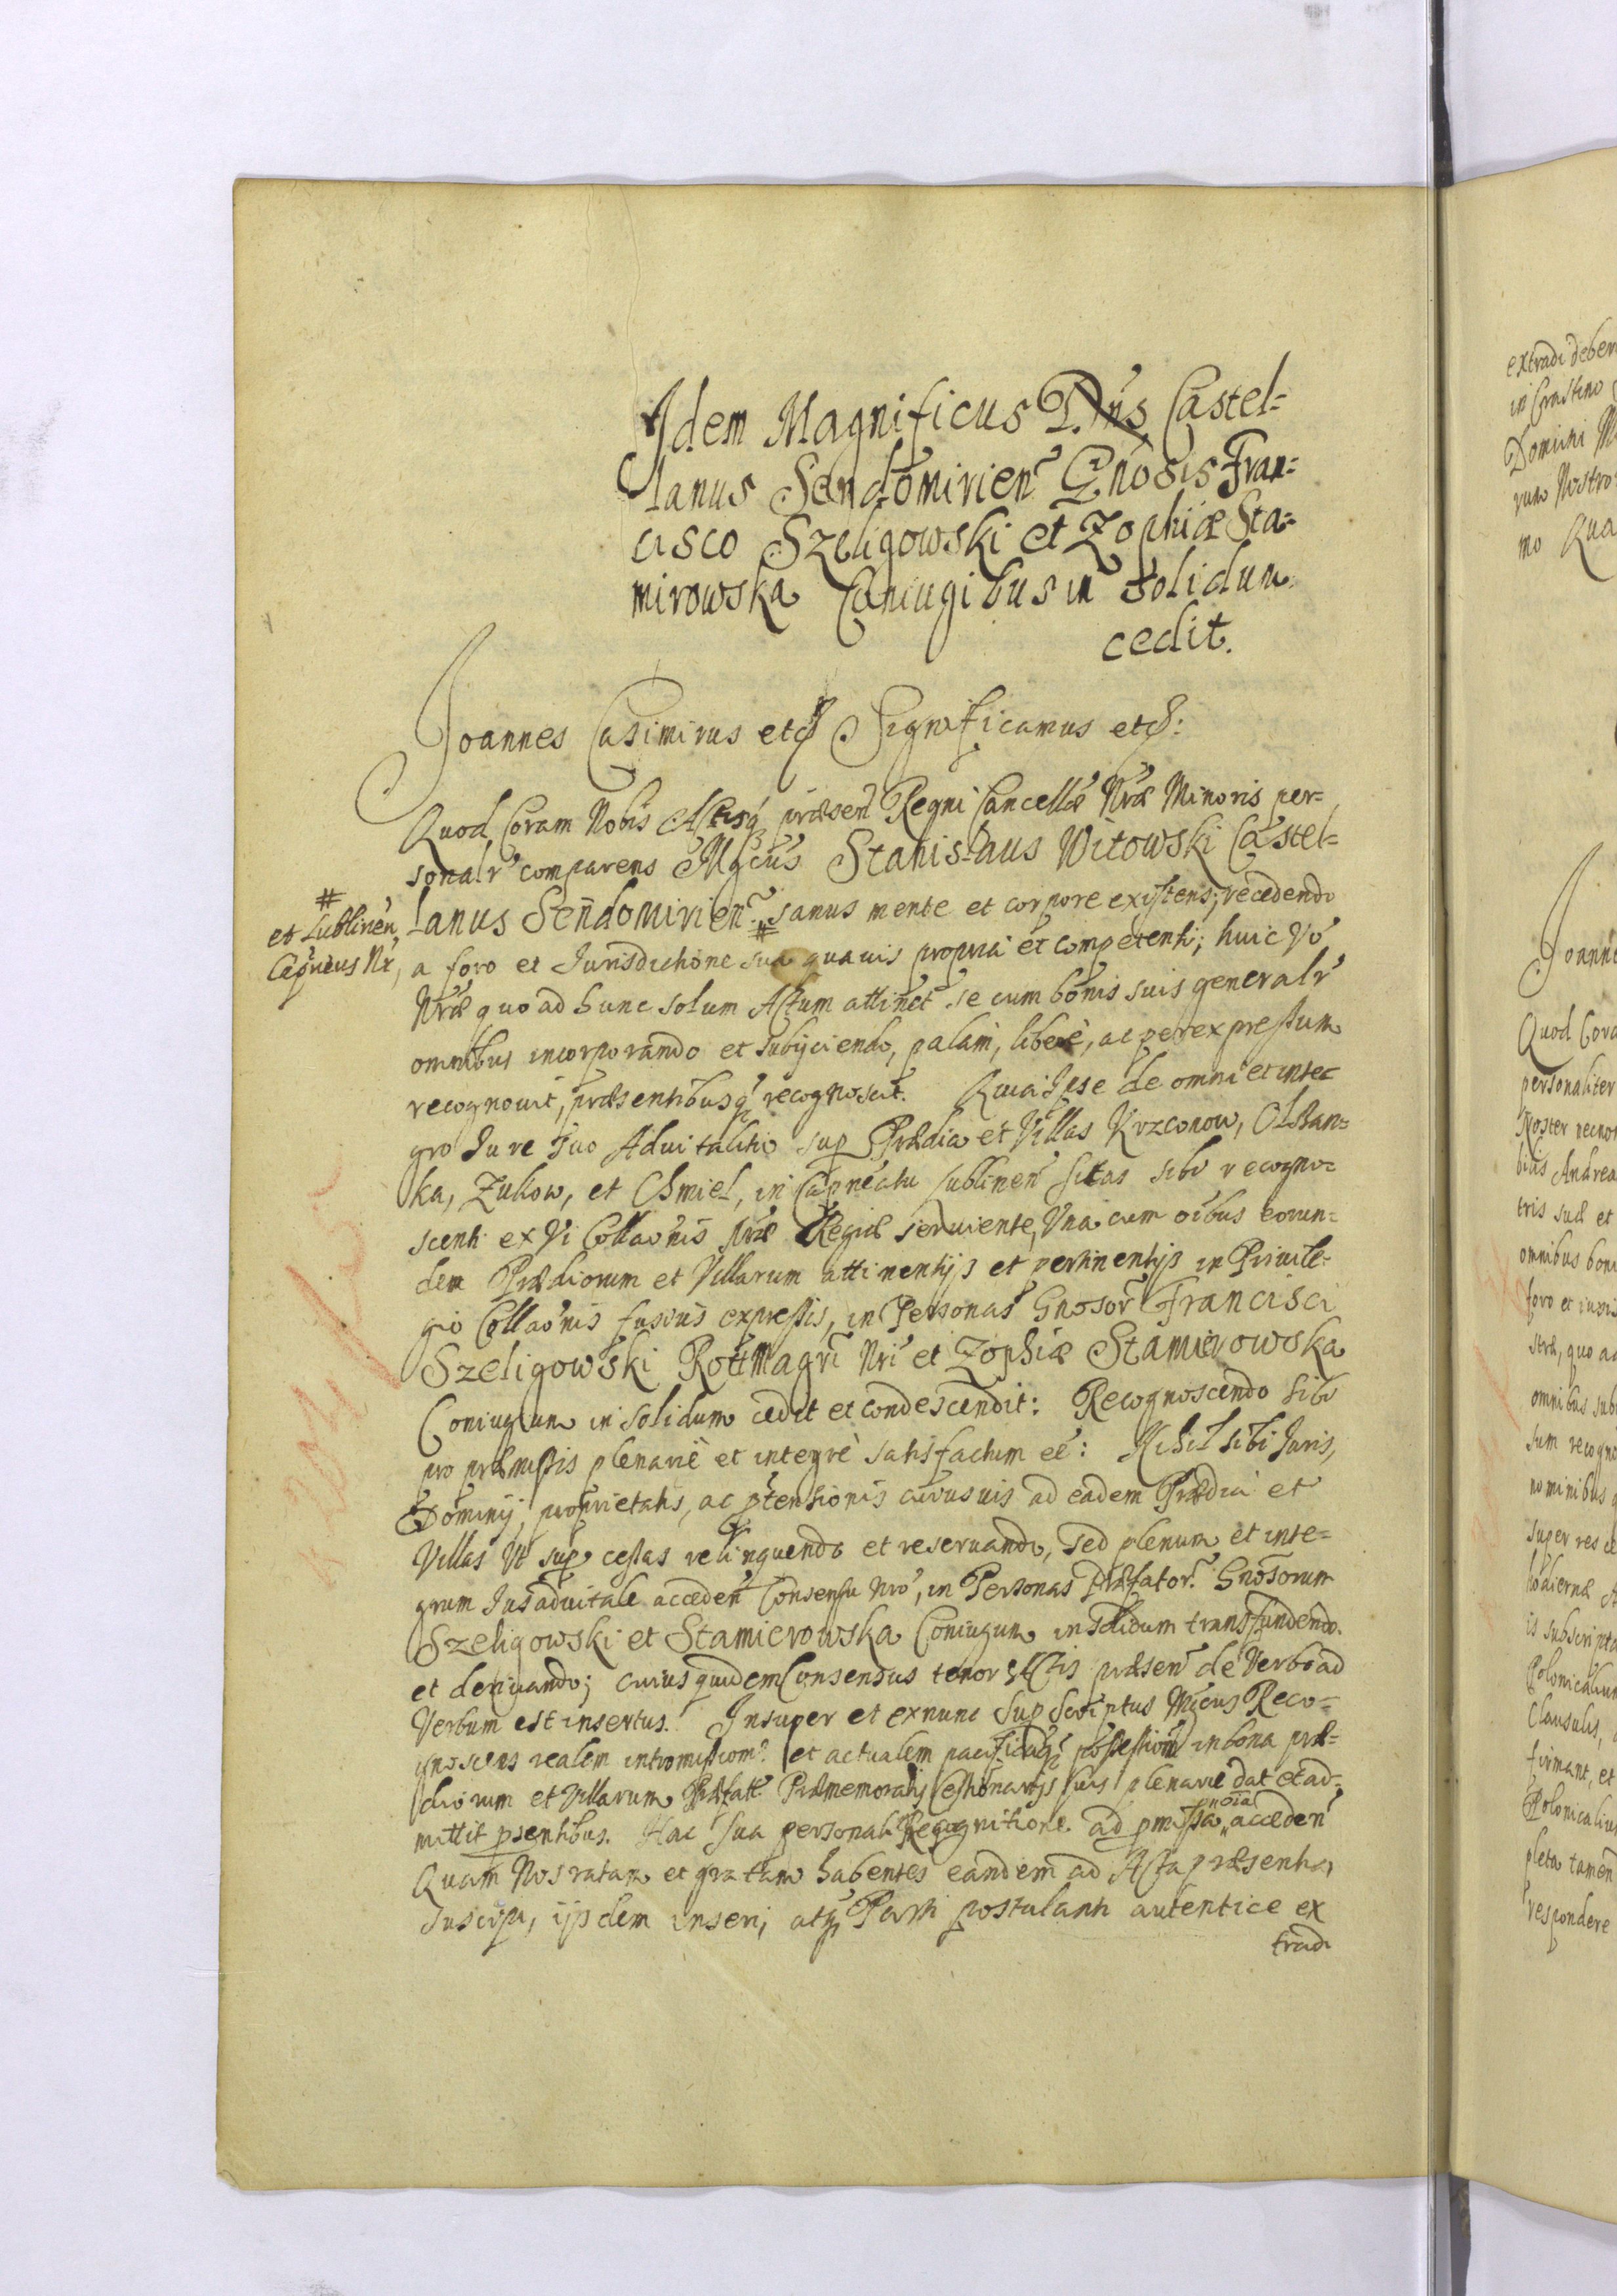 Idem Magnificus Dns Castel=
lanus Sendomirien Gnosis Fran=
cisco Szeligowski et Zophiæ Sta=
mirowska Coniugibus in solidum
cedit.
Joannes Casimirus etc Significamus etc:
Quod Coram Nobis Actisq præsen Regni Cancellæ Nræ Minoris per=
sonalr comparens Mgcus Stanislaus Witowski Castel=
lanus Sendomirien # sanus mente et corpore existens, recedendo
# et Lublinen
Capneus Nr,
a foro et Jurisdictione sua quavis propria et competenti, huic Vo
Nræ quo ad hunc solum Actum attinet se cum bonis suis generalr
omnibus incorporando et subijciendo, palam, libere, ac per expressum
recognovit, præsentibusq recognoscit. Quia Ipse de omni et inte=
gro Jure suo Advitalitio sup Prædia et Villas Krzconow, Olszan=
ka, Zukow, et Chmiel, in Capneatu Lublinen sitas sibi recogno=
scenti ex Vi Collaonis Nræ Regiæ serviente, Una cum oibus eorun=
dem Prædiorum et Villarum attinentijs et pertinentijs in Privile=
gio Collaonis fusius expressis, in Personas Gnosor Francisci
Szeligowski Rottmagri Nri et Zophiæ Stamierowska
Coniugum in solidum cedit et condescendit: Recognoscendo sibi
pro præmissis plenarie et integre satisfactum ee: Nihil sibi Juris,
Dominij, proprietatis, ac ptensionis cuiusvis ad eadem Prædia et
Villas Ut sup cessas relinquendo et reservando, sed plenum et inte=
grum Jus advitale acceden Consensu Nro, in Personas præfator Gnosorum
Szeligowski et Stamierowska Coniugum in solidum transfundendo
et derivando; cuius quidem Consensus tenor Actis præsen de Verbo ad
Verbum est insertus. Insuper et exnunc Supscriptus Mgcus Reco=
gnoscens realem intromission et actualem pacificaq possession in bona præ=
diorum et Villarum Præfatt Præmemoratis Cessionarijs suis plenarie dat et ad=
mittit psentibus. Hac sua personali Recognitione ad pmissa noia acceden
Quam Nos ratam et gratam habentes eandem ad Acta præsentia
suscipi, ijsdem inseri, atq Parti postulanti autentice ex
tradi
extradi deben
in Crastino
Domini
rum Nostro
mo Qua
Joanne
Quod Cora
personaliter
Noster necno
Andrea
tris suæ et
omnibus boni
foro et iuris
stræ, quo ad
omnibus sub
sum recogno
nominibus
super res
hodiernæ A
is subscripta
Polonicalium
Clausulis,
firmant, et
Polonicaliu
pleta tamen
respondere